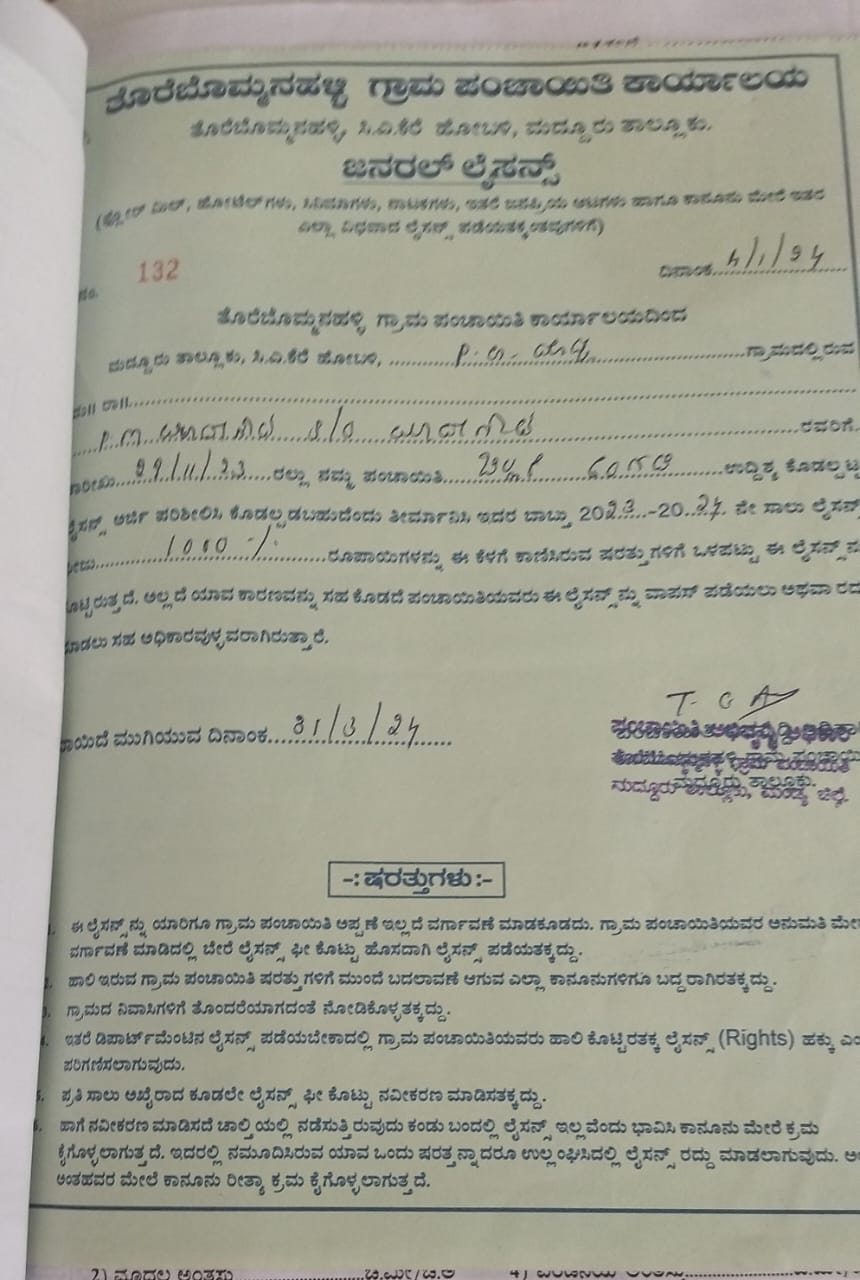 ತೊರೆಬೊಮ್ಮನಹಳ್ಳಿ ಗ್ರಾಮ ಪಂಚಾಯಿತಿ ಕಾರ್ಯಾಲಯ
ತೊರೆಬೊಮ್ಮನಹಳ್ಳಿ, ಸಿ.ಎ.ಕೆರೆ ಹೋಬಳಿ, ಮದ್ದೂರು ತಾಲ್ಲೂಕು.
ಜನರಲ್ ಲೈಸನ್ಸ್
(ಫ್ಲೋರ್ ಮಿಲ್, ಹೋಟೆಲ್‌ಗಳು, ಸಿನಿಮಾಗಳು, ನಾಟಕಗಳು, ಇತರೆ ಜನಪ್ರಿಯ ಆಟಗಳು ಹಾಗೂ ಕಾನೂನು ಮೇರೆ ಇತರ
ಎಲ್ಲಾ ವಿಧವಾದ ಲೈಸನ್ಸ್ ಪಡೆಯತಕ್ಕಂತವುಗಳಿಗೆ)
ನಂ. 132 ದಿನಾಂಕ 4/1/24
ತೊರೆಬೊಮ್ಮನಹಳ್ಳಿ ಗ್ರಾಮ ಪಂಚಾಯಿತಿ ಕಾರ್ಯಾಲಯದಿಂದ
ಮದ್ದೂರು ತಾಲ್ಲೂಕು, ಸಿ.ಎ.ಕೆರೆ ಹೋಬಳಿ, ಗ್ರಾಮದಲ್ಲಿರುವ
ರಾ||
S/o ರವರಿಗೆ
11/23 ರಲ್ಲು ನಮ್ಮ ಪಂಚಾಯಿತಿ ಉದ್ದಿಶ್ಯ ಕೊಡಲ್ಪಟ್ಟ
ಲೈಸನ್ಸ್ ಅರ್ಜಿ ಪರಿಶೀಲಿಸಿ ಕೊಡಲ್ಪಡಬಹುದೆಂದು ತೀರ್ಮಾನಿಸಿ ಇದರ ಬಾಬ್ತು 2023-2024 ನೇ ಸಾಲು ಲೈಸನ್ಸ್
1000/- ರೂಪಾಯಿಗಳನ್ನು ಈ ಕೆಳಗೆ ಕಾಣಿಸಿರುವ ಷರತ್ತುಗಳಿಗೆ ಒಳಪಟ್ಟು ಈ ಲೈಸನ್ಸ್
ಅಲ್ಲದೆ ಯಾವ ಕಾರಣವನ್ನು ಸಹ ಕೊಡದೆ ಪಂಚಾಯಿತಿಯವರು ಈ ಲೈಸನ್ಸ್‌ನ್ನು ವಾಪಸ್ ಪಡೆಯಲು ಅಥವಾ
ಸಹ ಅಧಿಕಾರವುಳ್ಳವರಾಗಿರುತ್ತಾರೆ.
ಮುಗಿಯುವ ದಿನಾಂಕ 31/3/24
ಮದ್ದೂರು ತಾಲ್ಲೂಕು, ಮಂಡ್ಯ ಜಿಲ್ಲೆ.
-:ಷರತ್ತುಗಳು:-
1. ಈ ಲೈಸನ್ಸ್‌ನ್ನು ಯಾರಿಗೂ ಗ್ರಾಮ ಪಂಚಾಯಿತಿ ಅಪ್ಪಣೆ ಇಲ್ಲದೆ ವರ್ಗಾವಣೆ ಮಾಡಕೂಡದು. ಗ್ರಾಮ ಪಂಚಾಯಿತಿಯವರ ಅನುಮತಿ ಮೇರೆ
ವರ್ಗಾವಣೆ ಮಾಡಿದಲ್ಲಿ ಬೇರೆ ಲೈಸನ್ಸ್ ಫೀ ಕೊಟ್ಟು ಹೊಸದಾಗಿ ಲೈಸನ್ಸ್ ಪಡೆಯತಕ್ಕದ್ದು.
2. ಹಾಲಿ ಇರುವ ಗ್ರಾಮ ಪಂಚಾಯಿತಿ ಷರತ್ತುಗಳಿಗೆ ಮುಂದೆ ಬದಲಾವಣೆ ಆಗುವ ಎಲ್ಲಾ ಕಾನೂನುಗಳಿಗೂ ಬದ್ದರಾಗಿರತಕ್ಕದ್ದು.
3. ಗ್ರಾಮದ ನಿವಾಸಿಗಳಿಗೆ ತೊಂದರೆಯಾಗದಂತೆ ನೋಡಿಕೊಳ್ಳತಕ್ಕದ್ದು.
4. ಇತರೆ ಡಿಪಾರ್ಟ್‌ಮೆಂಟಿನ ಲೈಸನ್ಸ್ ಪಡೆಯಬೇಕಾದಲ್ಲಿ ಗ್ರಾಮ ಪಂಚಾಯಿತಿಯವರು ಹಾಲಿ ಕೊಟ್ಟಿರತಕ್ಕ ಲೈಸನ್ಸ್ (Rights) ಹಕ್ಕು
ಪರಿಗಣಿಸಲಾಗುವುದು.
5. ಪ್ರತಿ ಸಾಲು ಅಖೈರಾದ ಕೂಡಲೇ ಲೈಸನ್ಸ್ ಫೀ ಕೊಟ್ಟು ನವೀಕರಣ ಮಾಡಿಸತಕ್ಕದ್ದು.
6. ಹಾಗೆ ನವೀಕರಣ ಮಾಡಿಸದೆ ಚಾಲ್ತಿಯಲ್ಲಿ ನಡೆಸುತ್ತಿರುವುದು ಕಂಡು ಬಂದಲ್ಲಿ ಲೈಸನ್ಸ್ ಇಲ್ಲವೆಂದು ಭಾವಿಸಿ ಕಾನೂನು ಮೇರೆ ಕ್ರಮ
ಕೈಗೊಳ್ಳಲಾಗುತ್ತದೆ. ಇದರಲ್ಲಿ ನಮೂದಿಸಿರುವ ಯಾವ ಒಂದು ಷರತ್ತನ್ನಾದರೂ ಉಲ್ಲಂಘಿಸಿದಲ್ಲಿ ಲೈಸನ್ಸ್ ರದ್ದು ಮಾಡಲಾಗುವುದು.
ಅಂತಹವರ ಮೇಲೆ ಕಾನೂನು ರೀತ್ಯಾ ಕ್ರಮ ಕೈಗೊಳ್ಳಲಾಗುತ್ತದೆ.